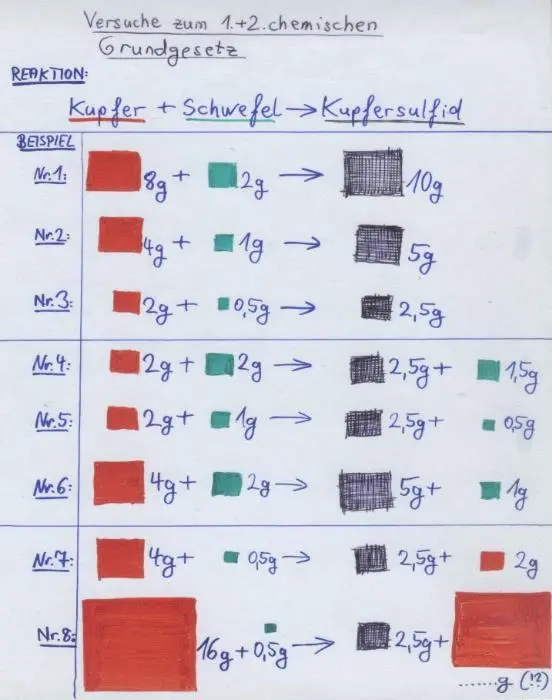 Versuche zum 1.+2. chemischen
Grundgesetz
REAKTION:
Kupfer + Schwefel → Kupfersulfid
BEISPIEL
Nr.1: 8g + 2g → 10g
Nr.2: 4g + 1g → 5g
Nr.3: 2g + 0,5g → 2,5g
Nr.4: 2g + 2g → 2,5g + 1,5g
Nr.5: 2g + 1g → 2,5g + 0,5g
Nr.6: 4g + 2g → 5g + 1g
Nr.7: 4g + 0,5g → 2,5g + 2g
Nr.8: 16g + 0,5g → 2,5g +
.......g (!?)